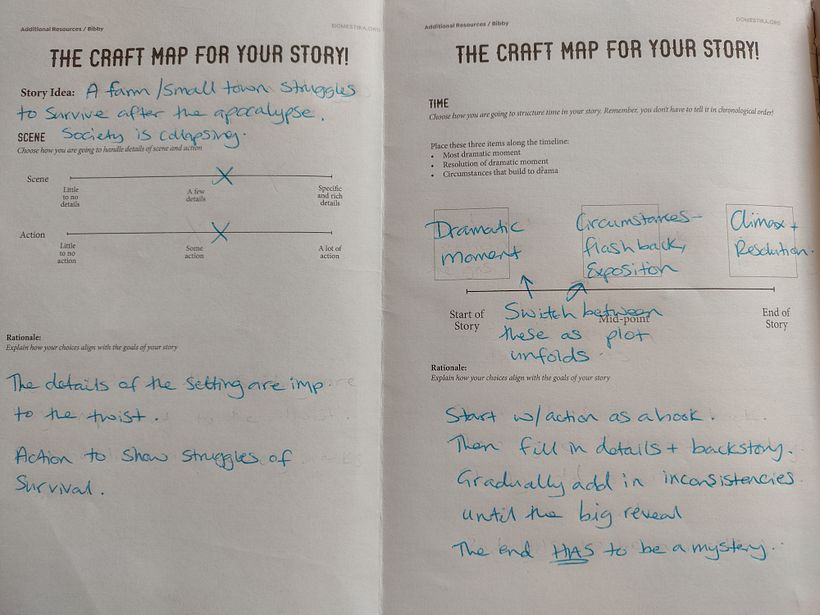 Additional Resources / Bibby
DOMESTIKA.ORG
THE CRAFT MAP FOR YOUR STORY!
Story Idea: A farm / Small town struggles
to survive after the apocalypse.
Society is collapsing.
SCENE
Choose how you are going to handle details of scene and action
Scene
Little
to no
details
A few
details
Specific
and rich
details
Action
Little
to no
action
Some
action
A lot of
action
Rationale:
Explain how your choices align with the goals of your story
The details of the setting are imp
to the twist.
Action to show struggles of
survival.
Additional Resources / Bibby
DOMESTIKA.ORG
THE CRAFT MAP FOR YOUR STORY!
TIME
Choose how you are going to structure time in your story. Remember, you don't have to tell it in chronological order!
Place these three items along the timeline:
• Most dramatic moment
• Resolution of dramatic moment
• Circumstances that build to drama
Dramatic
moment
Circumstances-
flashback,
Exposition
Climax +
Resolution.
Start of
Story
Mid-point
End of
Story
Switch between
these as plot
unfolds.
Rationale:
Explain how your choices align with the goals of your story
Start w/action as a hook.
Then fill in details + backstory.
Gradually add in inconsistencies
until the big reveal
The end HAS to be a mystery.